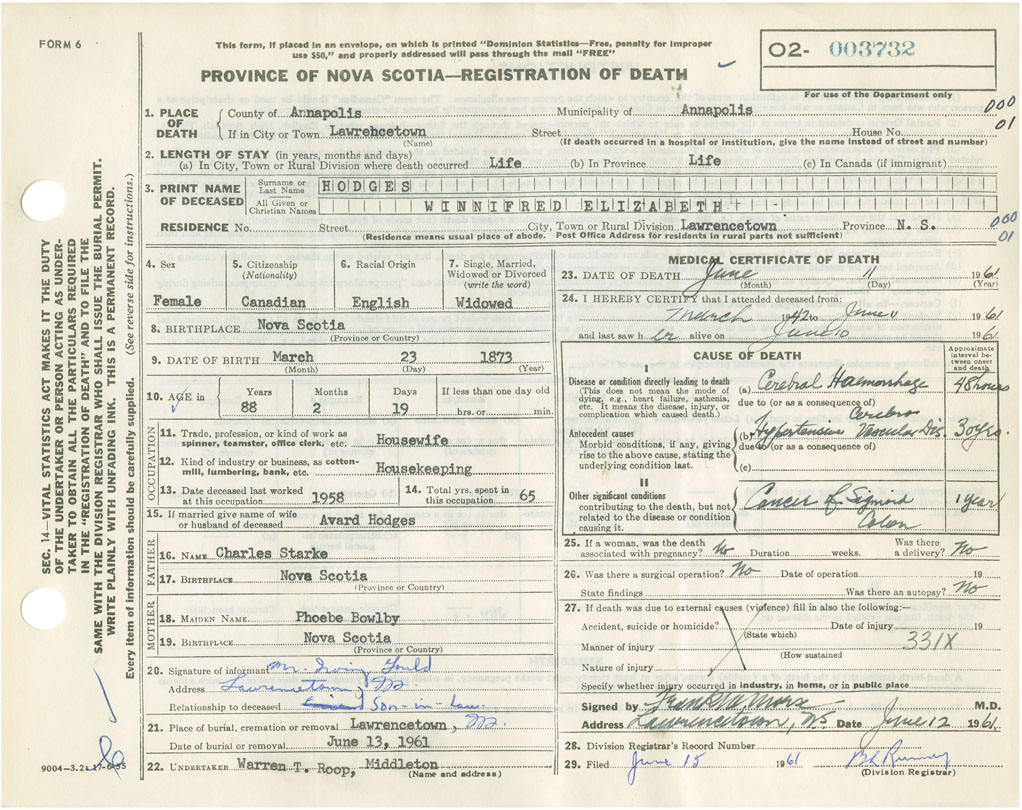 FORM 6
This form, if placed in an envelope, on which is printed "Dominion Statistics—Free, penalty for improper
use $50," and properly addressed will pass through the mail "FREE"
O2- 003732
PROVINCE OF NOVA SCOTIA—REGISTRATION OF DEATH
For use of the Department only
1. PLACE OF DEATH
County of Annapolis Municipality of Annapolis 000
If in City or Town Lawrencetown Street House No. 01
(Name) (If death occurred in a hospital or institution, give the name instead of street and number)
2. LENGTH OF STAY (in years, months and days)
(a) In City, Town or Rural Division where death occurred Life (b) In Province Life (c) In Canada (if immigrant)
3. PRINT NAME OF DECEASED
Surname or Last Name HODGES
All Given or Christian Names WINNIFRED ELIZABETH
RESIDENCE No. Street City, Town or Rural Division Lawrencetown Province N. S. 000
(Residence means usual place of abode. Post Office Address for residents in rural parts not sufficient) 01
4. Sex
Female
5. Citizenship
(Nationality)
Canadian
6. Racial Origin
English
7. Single, Married,
Widowed or Divorced
(write the word)
Widowed
8. BIRTHPLACE Nova Scotia
(Province or Country)
9. DATE OF BIRTH March 23 1873
(Month) (Day) (Year)
10. AGE in Years Months Days If less than one day old
88 2 19 hrs. or min.
OCCUPATION
11. Trade, profession, or kind of work as
spinner, teamster, office clerk, etc. Housewife
12. Kind of industry or business, as cotton-
mill, lumbering, bank, etc. Housekeeping
13. Date deceased last worked
at this occupation 1958
14. Total yrs. spent in
this occupation 65
15. If married give name of wife
or husband of deceased Avard Hodges
FATHER
16. NAME Charles Starke
17. BIRTHPLACE Nova Scotia
(Province or Country)
MOTHER
18. MAIDEN NAME Phoebe Bowlby
19. BIRTHPLACE Nova Scotia
(Province or Country)
20. Signature of informant Mr. Irving Gould
Address Lawrencetown, N.S.
Relationship to deceased Son-in-law
21. Place of burial, cremation or removal Lawrencetown, N.S.
Date of burial or removal June 13, 1961
22. UNDERTAKER Warren T. Roop, Middleton
(Name and address)
MEDICAL CERTIFICATE OF DEATH
23. DATE OF DEATH June 11 1961
(Month) (Day) (Year)
24. I HEREBY CERTIFY that I attended deceased from:
March 1942 to June 11 1961
and last saw her alive on June 10 1961
CAUSE OF DEATH
Approximate
interval be-
tween onset
and death
I
Disease or condition directly leading to death
(This does not mean the mode of
dying, e.g., heart failure, asthenia,
etc. It means the disease, injury, or
complication which caused death.)
(a) Cerebral Haemorrhage 48 hours
due to (or as a consequence of)
Antecedent causes
Morbid conditions, if any, giving
rise to the above cause, stating the
underlying condition last.
Cerebro
(b) Hypertensive Vascular Dis. 30 yrs.
due to (or as a consequence of)
(c)
II
Other significant conditions
contributing to the death, but not
related to the disease or condition
causing it.
Cancer of Sigmoid
Colon
1 year
25. If a woman, was the death
associated with pregnancy? No Duration weeks. Was there
a delivery? No
26. Was there a surgical operation? No Date of operation 19
State findings Was there an autopsy? No
27. If death was due to external causes (violence) fill in also the following:—
Accident, suicide or homicide? Date of injury 19
(State which)
Manner of injury 331X
(How sustained
Nature of injury
Specify whether injury occurred in industry, in home, or in public place
Signed by Frank W. Morse M.D.
Address Lawrencetown, N.S. Date June 12 1961.
28. Division Registrar's Record Number
29. Filed June 15 1961
(Division Registrar)
SEC. 14—VITAL STATISTICS ACT MAKES IT THE DUTY
OF THE UNDERTAKER OR PERSON ACTING AS UNDER-
TAKER TO OBTAIN ALL THE PARTICULARS REQUIRED
IN THE "REGISTRATION OF DEATH" AND TO FILE THE
SAME WITH THE DIVISION REGISTRAR WHO SHALL ISSUE THE BURIAL PERMIT.
WRITE PLAINLY WITH UNFADING INK. THIS IS A PERMANENT RECORD.
Every item of information should be carefully supplied. (See reverse side for instructions.)